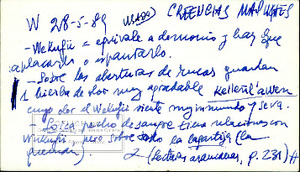 W 28-5-89 CREENCIAS MAPUCHES
- Wekufü = equivale a demonio y hay que
aplacarlo o espantarlo.
- Sobre las aberturas de rucas guardan
1 hierba de flor muy agradable Kelleñ'lawen
cuyo olor el Wekufü siente muy inmundo y se va.
pecho de sangre tiene relaciones con
Wekufü, pero sobre todo la lagartija (la
(Lecturas araucanas, p. 231)